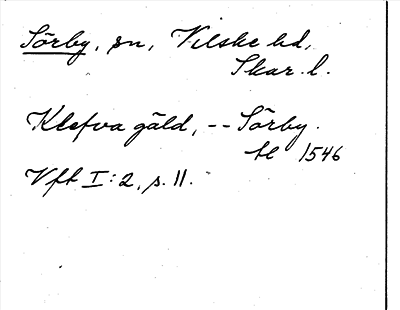 Sörby, sn, Vilske hd,
Skar. l.
Klefva gäld, -- Sörby.
tl 1546
Vft I:2, s. 11.